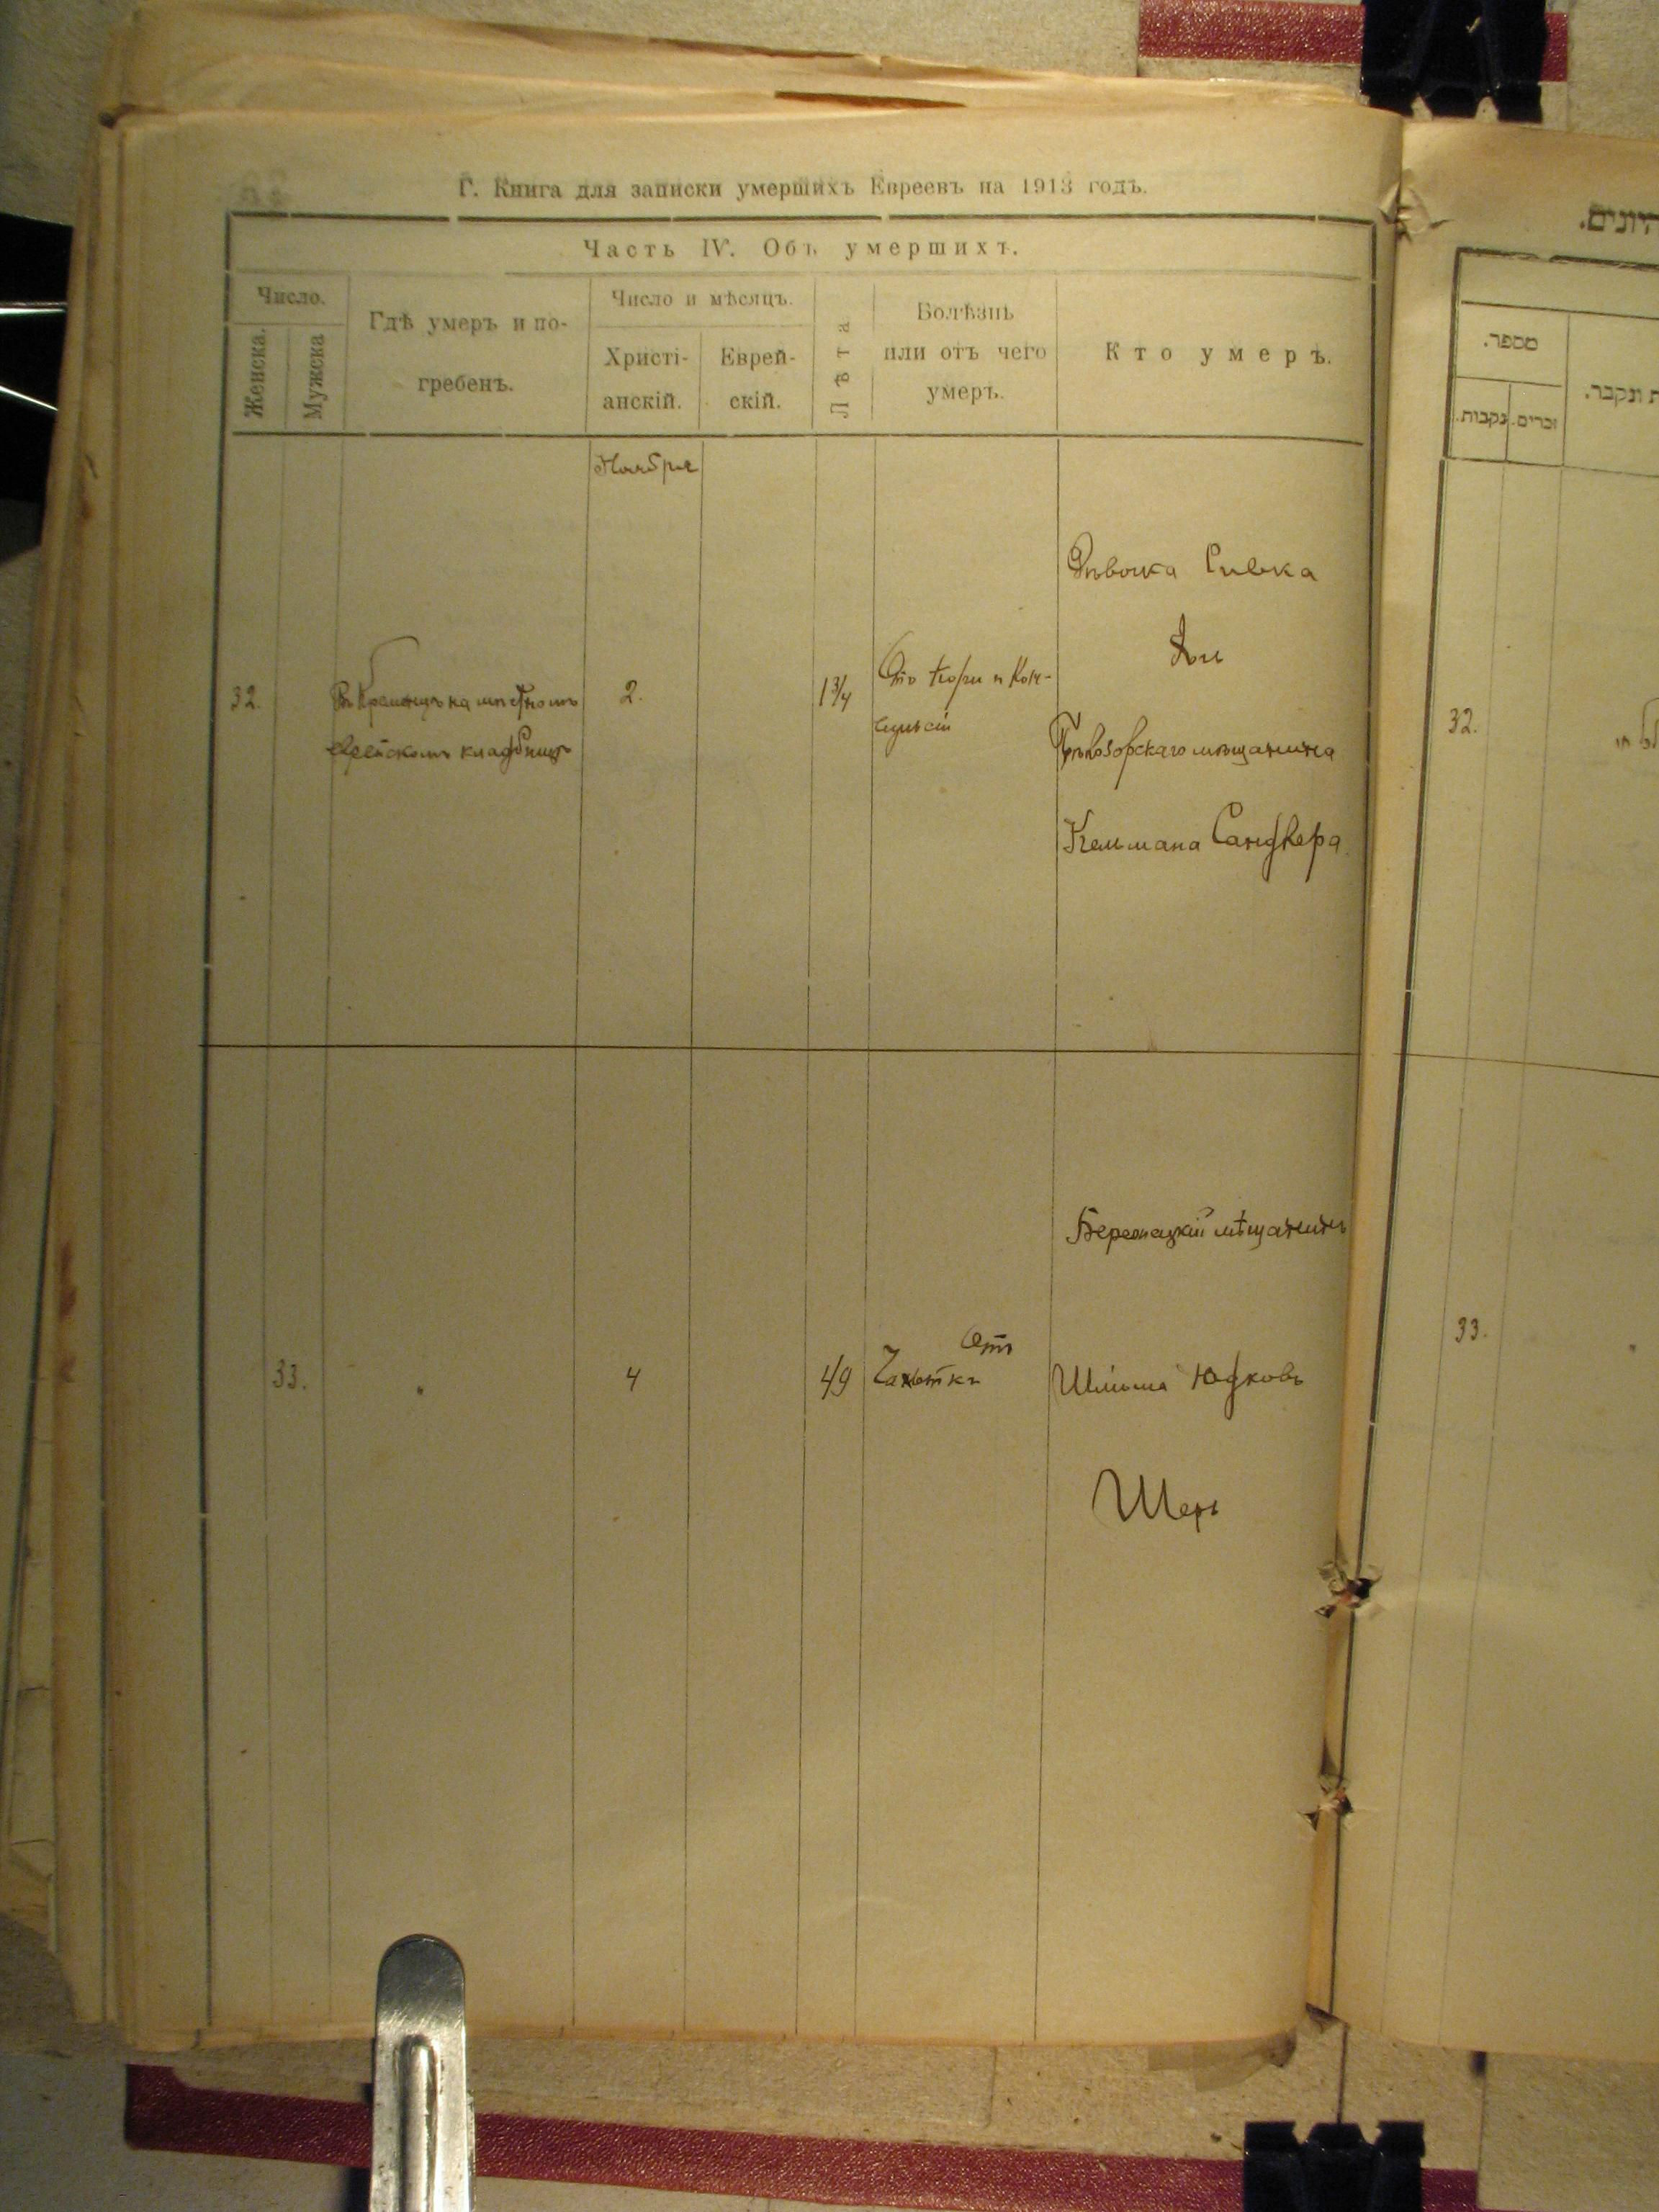 Г. Книга для записки умершихъ Евреевъ на 1913 годъ.
Часть IV. Объ умершихъ.
Число.
Женска.
Мужска
Гдѣ умеръ и по-
гребенъ.
Число и мѣсяцъ.
Христі-
анскій.
Еврей-
скій.
Лѣта.
Болѣзнь
или отъ чего
умеръ.
Кто умеръ.
Ноября
32.
Въ Кременцѣ на мѣстномъ
еврейскомъ кладбищѣ
2.
1 3/4
Отъ Кори и
Дѣвочка Сивка
Дочь
мѣщанина
Кельмана Сандлера
33.
4
49
Отъ
Чахотки
Бережецкій мѣщанинъ
Шліома Юдковъ
Шеръ
מספר.
נקבות.
זכרים.
ונקבר.
32.
33.